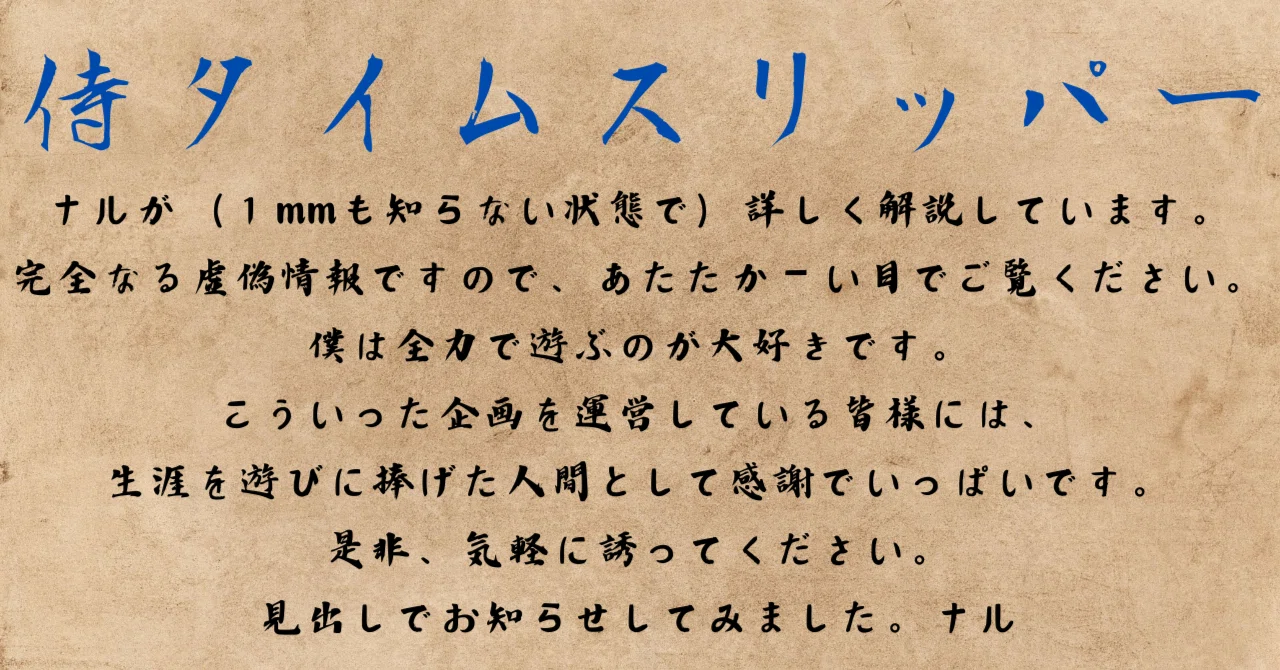 侍タイムスリッパー
ナルが（１mmも知らない状態で）詳しく解説しています。
完全なる虚偽情報ですので、あたたかーい目でご覧ください。
僕は全力で遊ぶのが大好きです。
こういった企画を運営している皆様には、
生涯を遊びに捧げた人間として感謝でいっぱいです。
是非、気軽に誘ってください。
見出しでお知らせしてみました。ナル